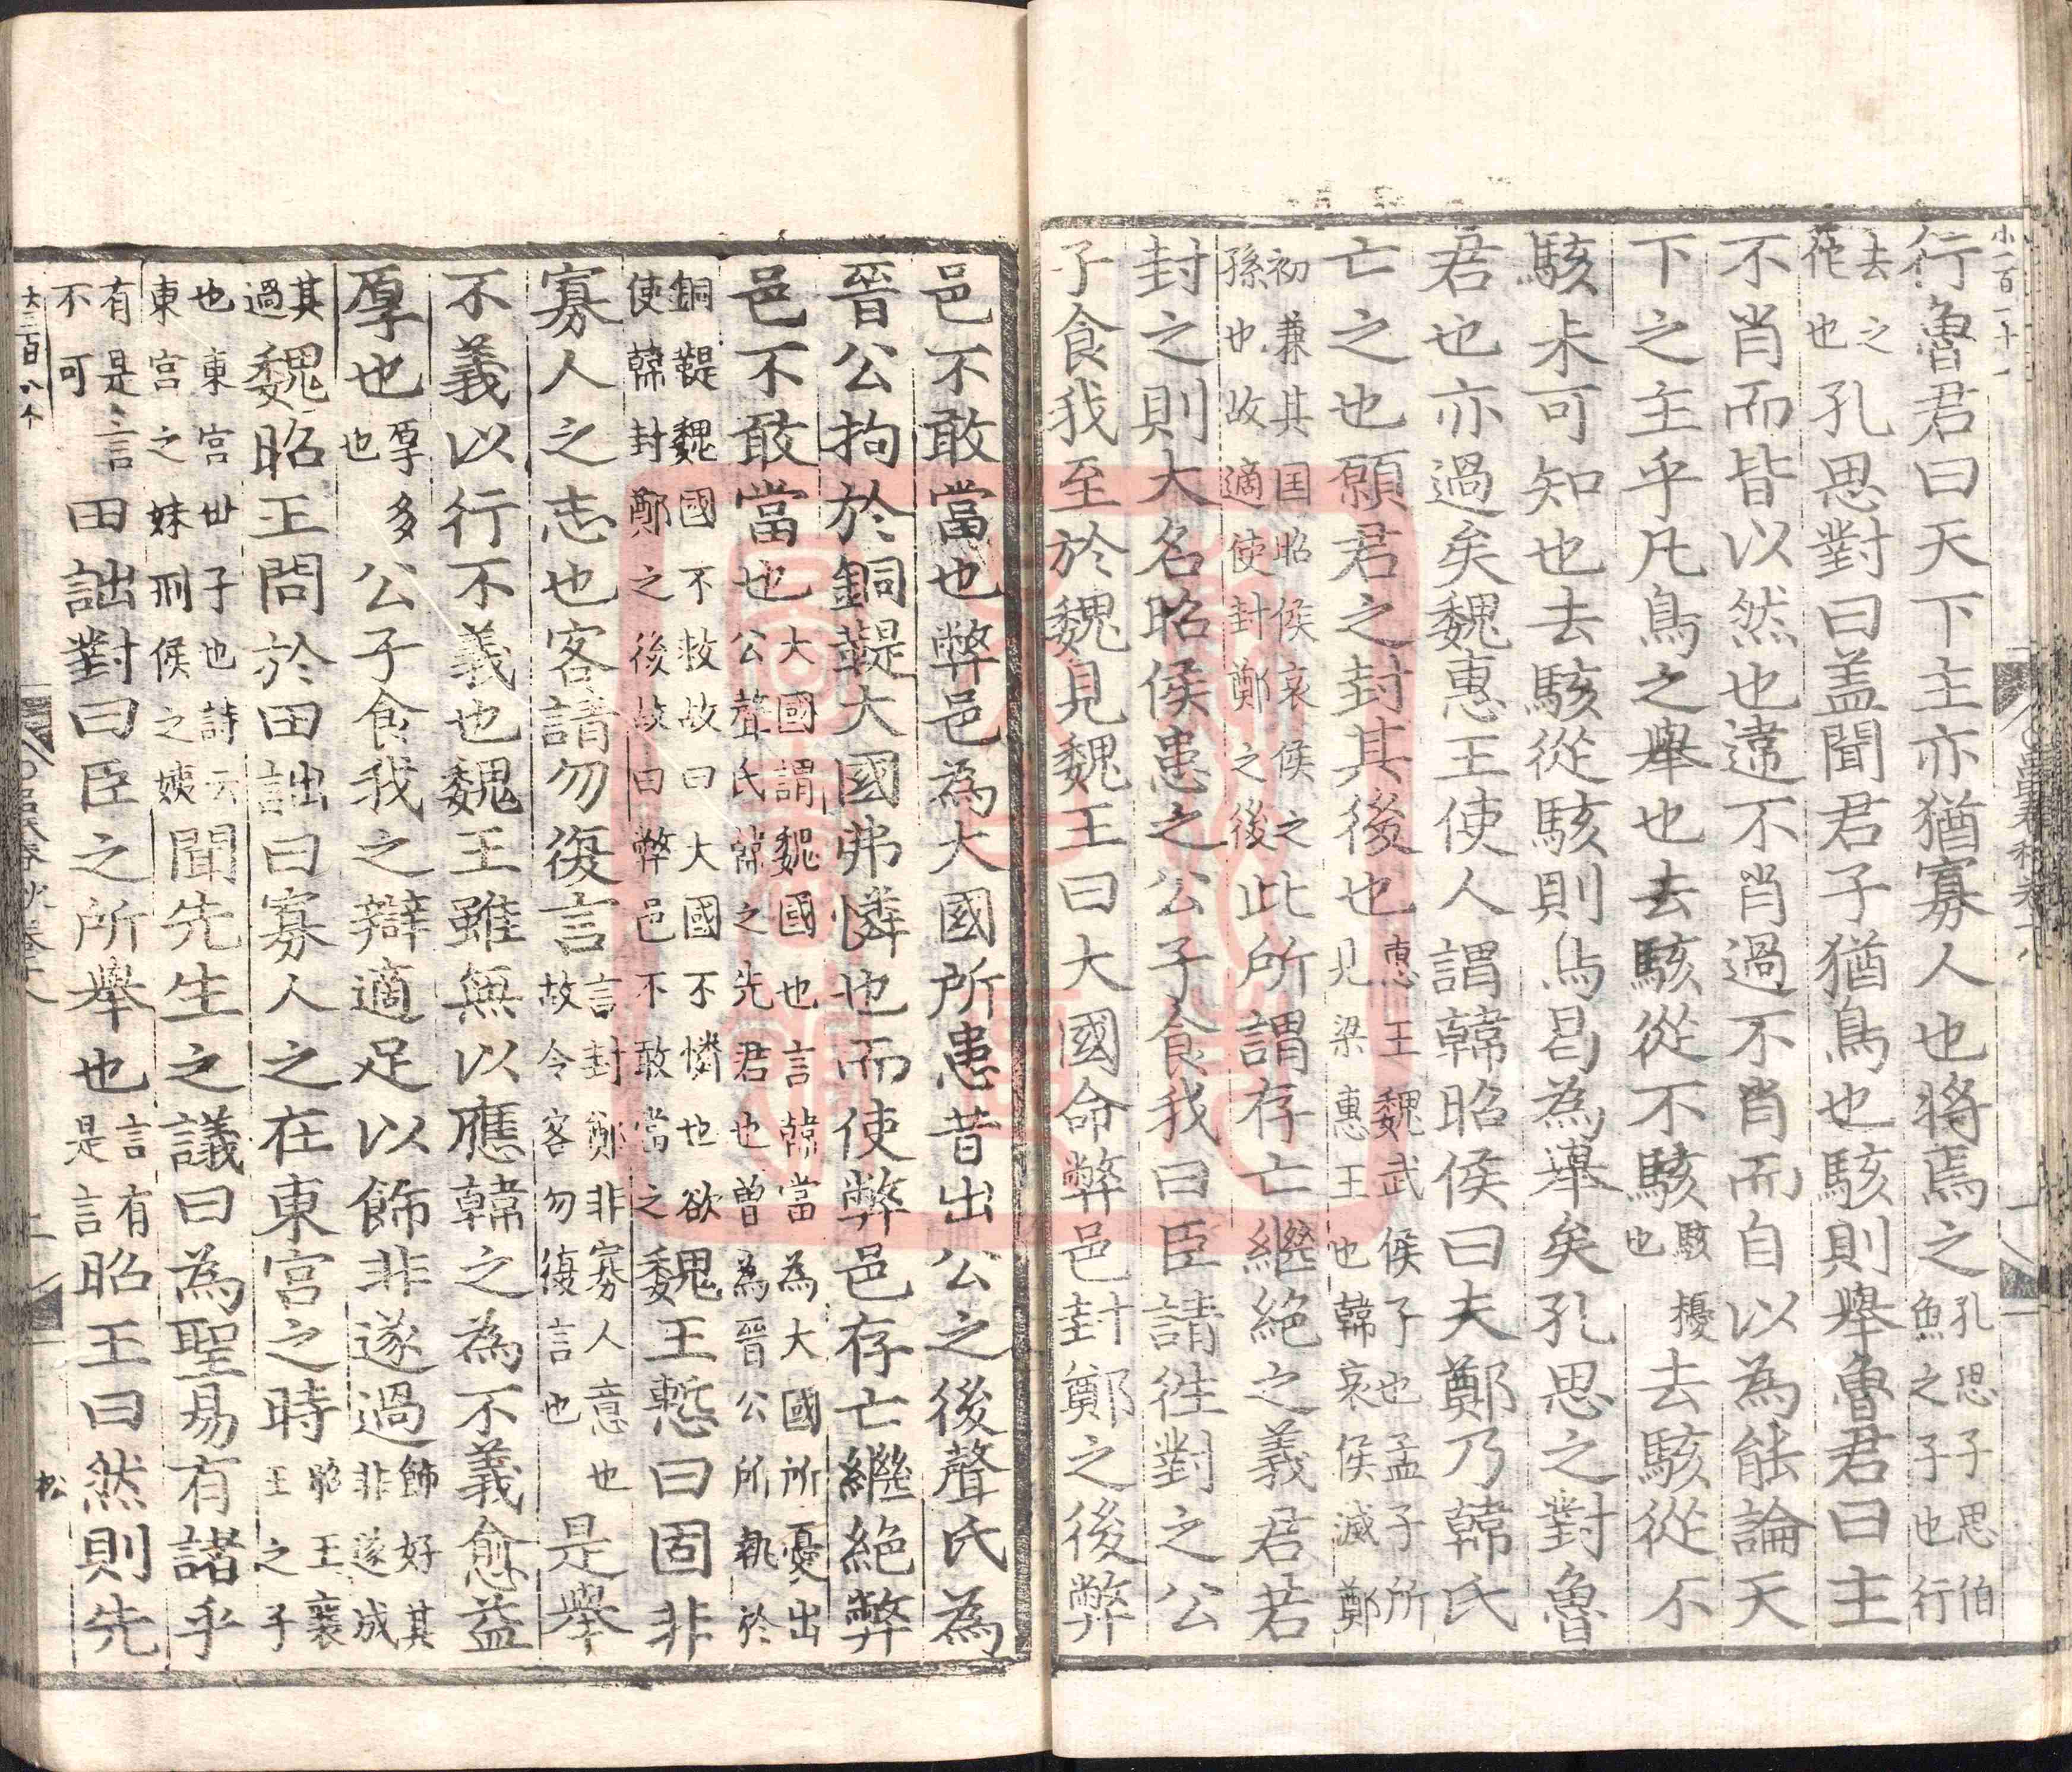 小一百一十一
行魯君曰天下主亦猶寡人也將焉之孔思子思伯魚之子也行
去之佗也孔思對曰盖聞君子猶鳥也駭則舉魯君曰主
不肖而皆以然也違不肖過不肖而自以為能論天
下之主乎凡鳥之舉也去駭從不駭駭擾也去駭從不
駭未可知也去駭從駭則鳥曷為舉矣孔思之對魯
君也亦過矣魏惠王使人謂韓昭侯曰夫鄭乃韓氏
亡之也願君之封其後也惠王魏武侯子也孟子所見梁惠王也韓哀侯滅鄭
初兼其国昭侯哀侯之孫也故適使封鄭之後此所謂存亡繼絶之義君若
封之則大名昭侯患之公子食我曰臣請徃對之公
子食我至於魏見魏王曰大國命弊邑封鄭之後弊
邑不敢當也弊邑為大國所患昔出公之後聲氏為
晉公拘於銅鞮大國弗憐也而使弊邑存亡繼絶弊
邑不敢當也大國謂魏國也言韓當為大國所憂出公聲氏韓之先君也曾為晉公所執於
銅鞮魏國不救故曰大國不憐也欲使韓封鄭之後故曰弊邑不敢當之魏王慙曰固非
寡人之志也客請勿復言言封鄭非寡人意也故令客勿復言也是舉
不義以行不義也魏王雖無以應韓之為不義愈益
厚也厚多也公子食我之辯適足以飾非遂過飾好其非遂成其
過魏昭王問於田詘曰寡人之在東宮之時昭王襄王之子
也東宮世子也詩云東宮之妹刑侯之姨聞先生之議曰為聖易有諸乎
有是言不可田詘對曰臣之所舉也言有是言昭王曰然則先
大三百八个
松